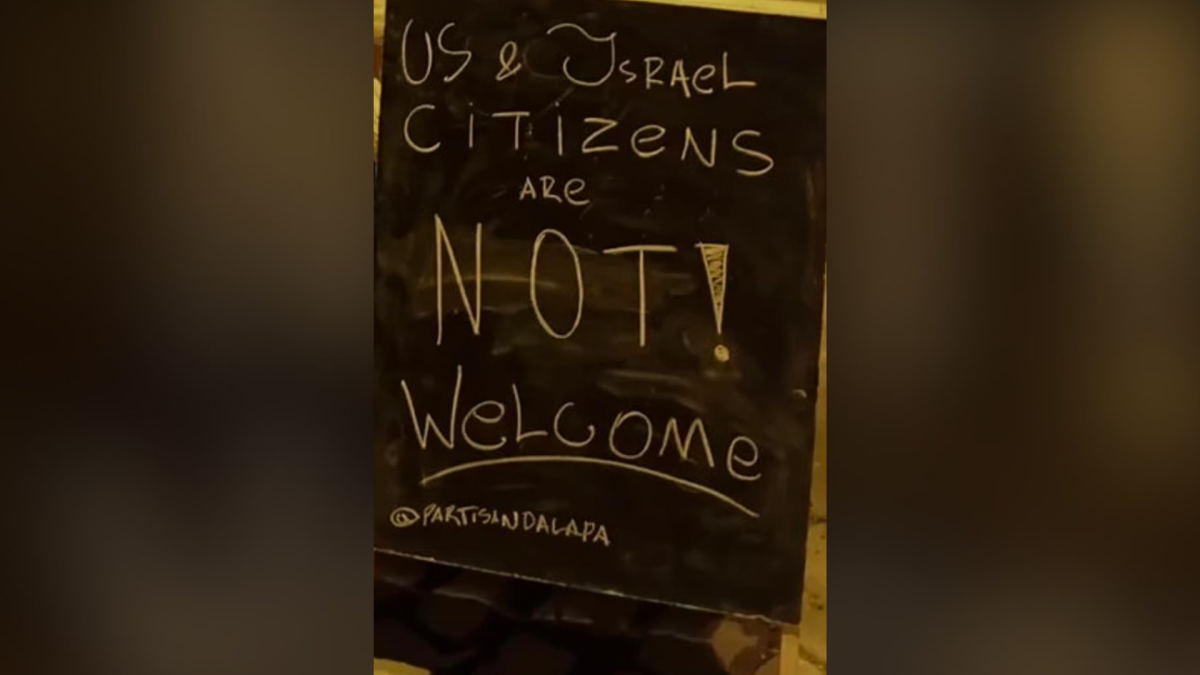 US & ISRAeL
CiTiZeNS
ARe
NOT!
WeLCOMe
@PARTISANDALAPA